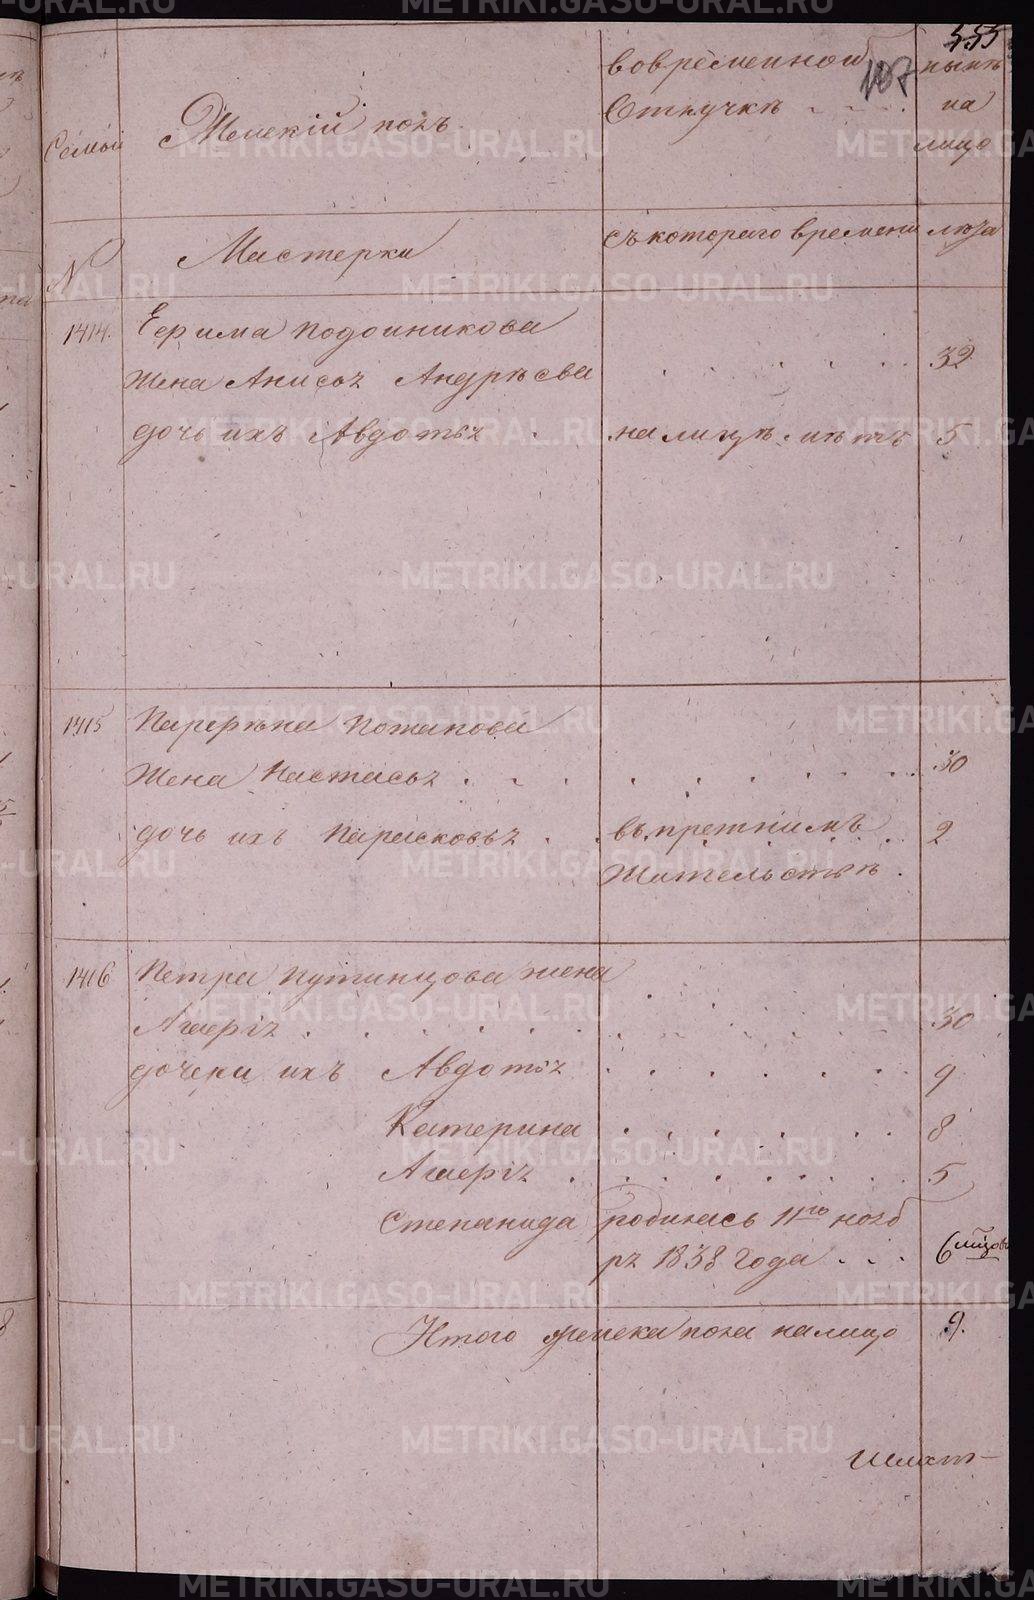 555
107
Семьи
Женскій полъ
вовременной
Отлучкѣ
нынѣ
на
лицо
№
Мастерки
съ котораго времени
лѣта
1414.
Ефима Подойникова
жена Анисья Андрѣева
32
дочь ихъ Авдотья
на лицѣ нѣтъ
5
1415
Парфѣна Потапова
жена Настасья
30
дочь ихъ Парасковья
въ прежнимъ
2
жительствѣ
1416
Петра Путинцова жена
Агафія
30
дочери ихъ Авдотья
9
Катерина
8
Агафія
5
Степанида родилась 11го нояб
ря 1838 года
6 мѣсецовъ
Итого женска пола налицо
9.
METRIKI.GASO-URAL.RU